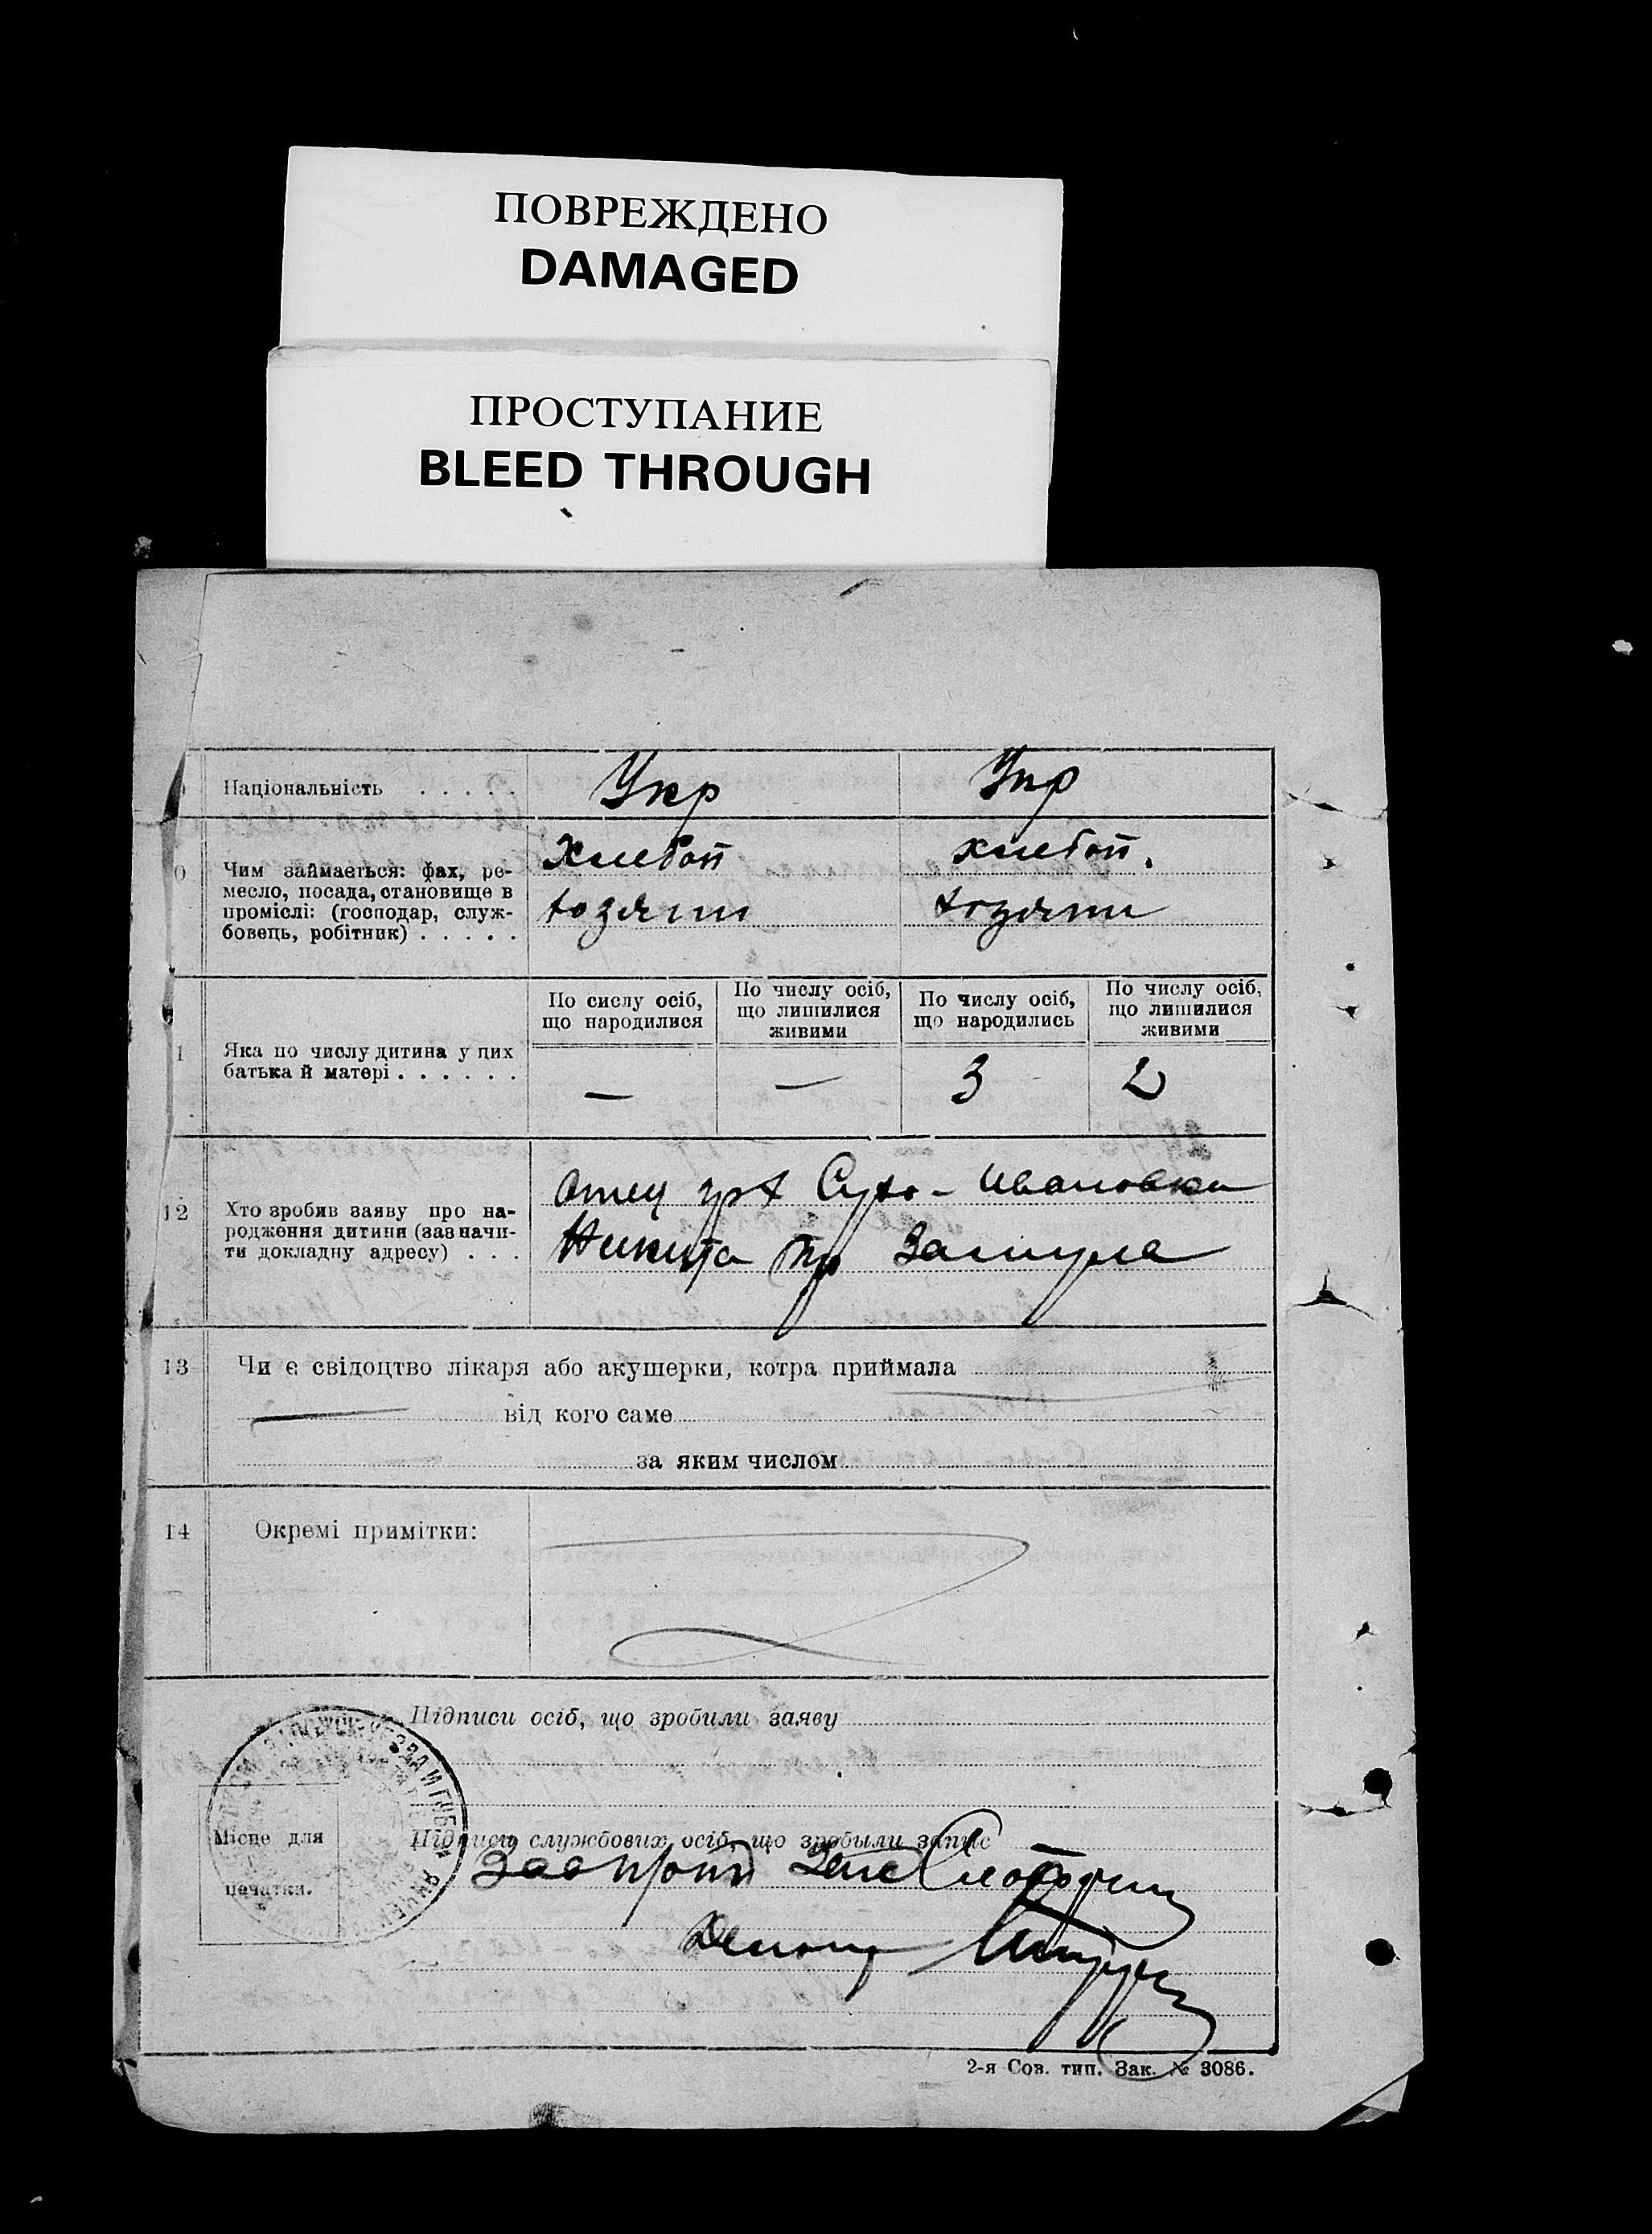 ПОВРЕЖДЕНО
DAMAGED
ПРОСТУПАНИЕ
BLEED THROUGH
Національність . . . . .
Укр
Укр
0
Чим займається: фах, ре-
месло, посада, становище в
проміслі: (господар, служ-
бовець, робітник) . . . . .
Хлебоп
хозяин
хлебоп.
хозяин
1
Яка по числу дитина у цих
батька й матері . . . . . .
По сислу осіб,
що народилися
По числу осіб,
що лишилися
живими
По числу осіб,
що народились
По числу осіб,
що лишилися
живими
—
—
3
2
12
Хто зробив заяву про на-
родження дитини (зазначи-
ти докладну адресу) . . .
Отец гр х Сухо-Ивановки
Никита Пр
13
Чи є свідоцтво лікаря або акушерки, котра приймала
від кого саме
за яким числом
14
Окремі примітки:
Підписи осіб, що зробили заяву
Підписи службових осіб, що зробыли запис
Місце для
печатки.
2-я Сов. тип. Зак. № 3086.